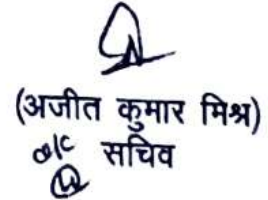 (अजीत कुमार मिश्र)
o/c सचिव